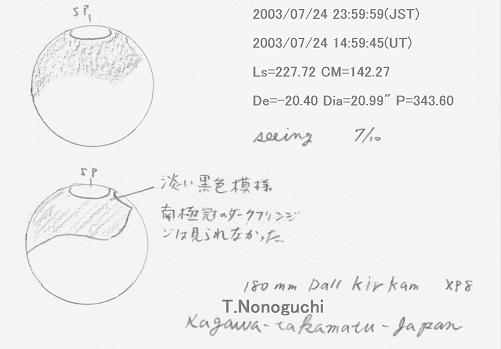 SP
2003/07/24 23:59:59(JST)
2003/07/24 14:59:45(UT)
Ls=227.72 CM=142.27
De=-20.40 Dia=20.99" P=343.60
seeing 7/10
SP
淡い黒色模様
南極冠のダークフリンジ
ジは見られなかった。
180mm Dall kirkam XP8
T.Nonoguchi
Kagawa-takamatu-Japan